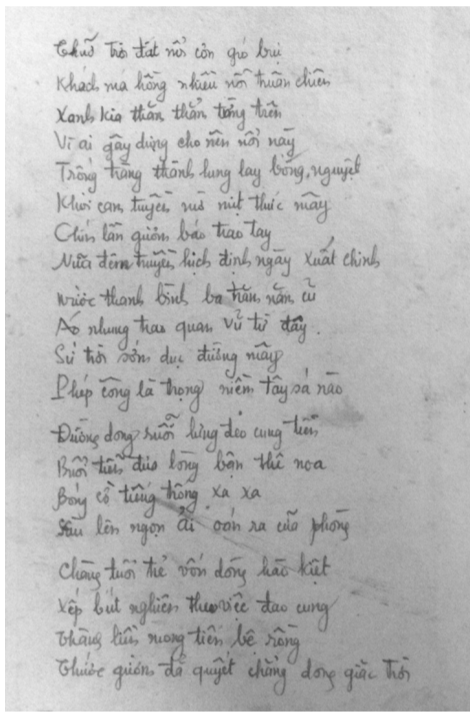 Thuở trời đất nổi cơn gió bụi
Khách má hồng nhiều nỗi truân chiên
Xanh kia thăm thẳm tầng trên
Vì ai gây dựng cho nên nỗi này
Trống tràng thành lung lay bóng nguyệt
Khói cam tuyền mờ mịt thức mây
Chín lần gươm báu trao tay
Nửa đêm truyền hịch định ngày xuất chinh
Nước thanh bình ba trăm năm cũ
Áo nhung trao quan vũ từ đây.
Sứ trời sớm dục đường mây
Phép công là trọng niềm tây sá nào
Đường dong ruổi lưng đeo cung tiễn
Buổi tiễn đưa lòng bận thê noa
Bóng cờ tiếng trống xa xa
Sầu lên ngọn ải oán ra cửa phòng
Chàng tuổi trẻ vốn dòng hào kiệt
Xếp bút nghiên theo việc đao cung
Thành liền mong tiến bệ rồng
Thước gươm đã quyết chẳng dong giặc trời